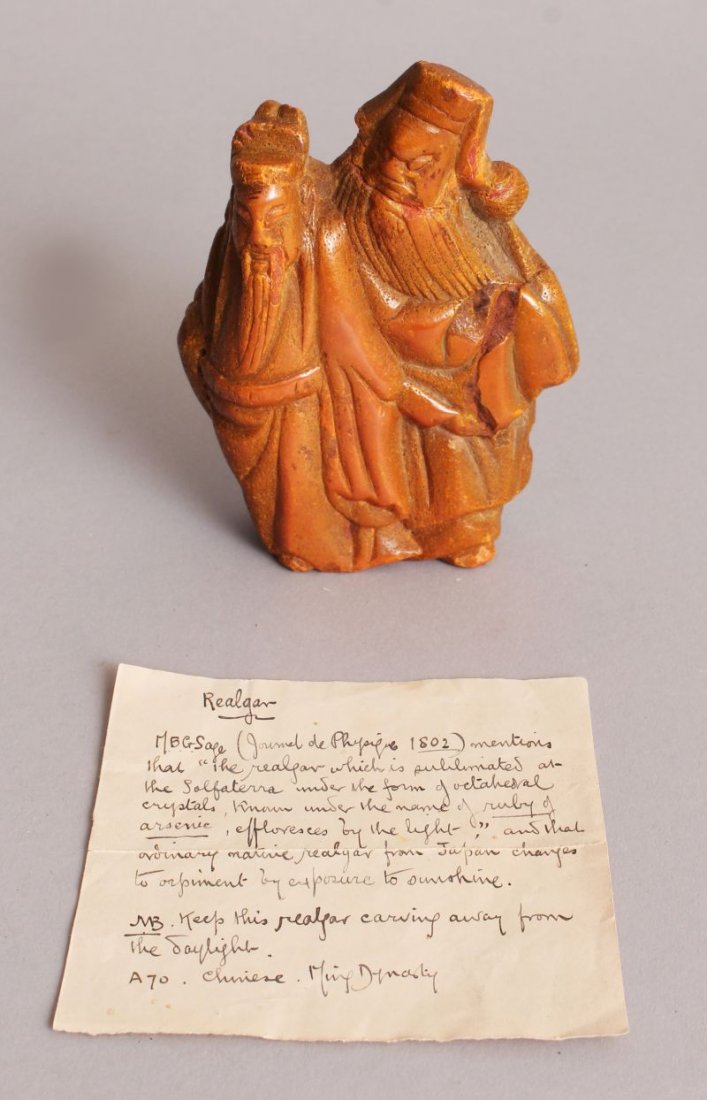 Realgar
MBG Sage (Journal de Physique 1802) mentions
that "the realgar which is sublimated at
the Solfaterra under the form of octahedral
crystals, known under the name of ruby of
arsenic, effloresces by the light", and that
ordinary native realgar from Japan changes
to orpiment by exposure to sunshine.
NB. Keep this realgar carving away from
the daylight.
A70. Chinese. Ming Dynasty